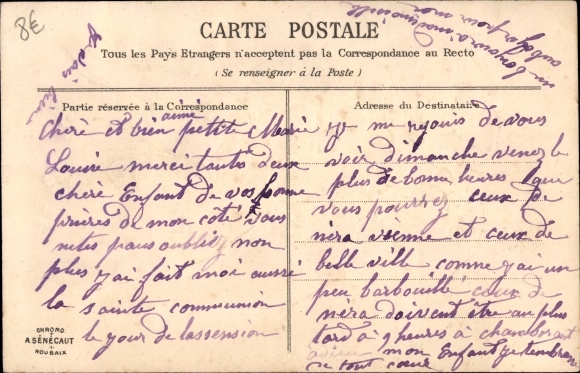 8€
CARTE POSTALE
Tous les Pays Etrangers n'acceptent pas la Correspondance au Recto
(Se renseigner à la Poste)
Partie réservée à la Correspondance
aimé
Chère et bien petite Marie
Louise merci toutes deux
chère Enfant de vos bonne
prières de mon coté vous
netes pas oubliez non
plus j'ai fait moi aussi
la sainte communion
le jour de lassension
Adresse du Destinataire
je me rejouis de vous
voir dimanche venez le
plus de bonne heures que
vous pourrez ceux de
nira vienne et ceux de
belle ville comme j'ai un
peu barbouillé ceux de
nira doivent être au plus
tard a 9 heures à
mon Enfant je tembrasse
de tout coeur
un bonjour a mademoiselle
pour moi
CHROMO
A. SÉNÉCAUT
ROUBAIX